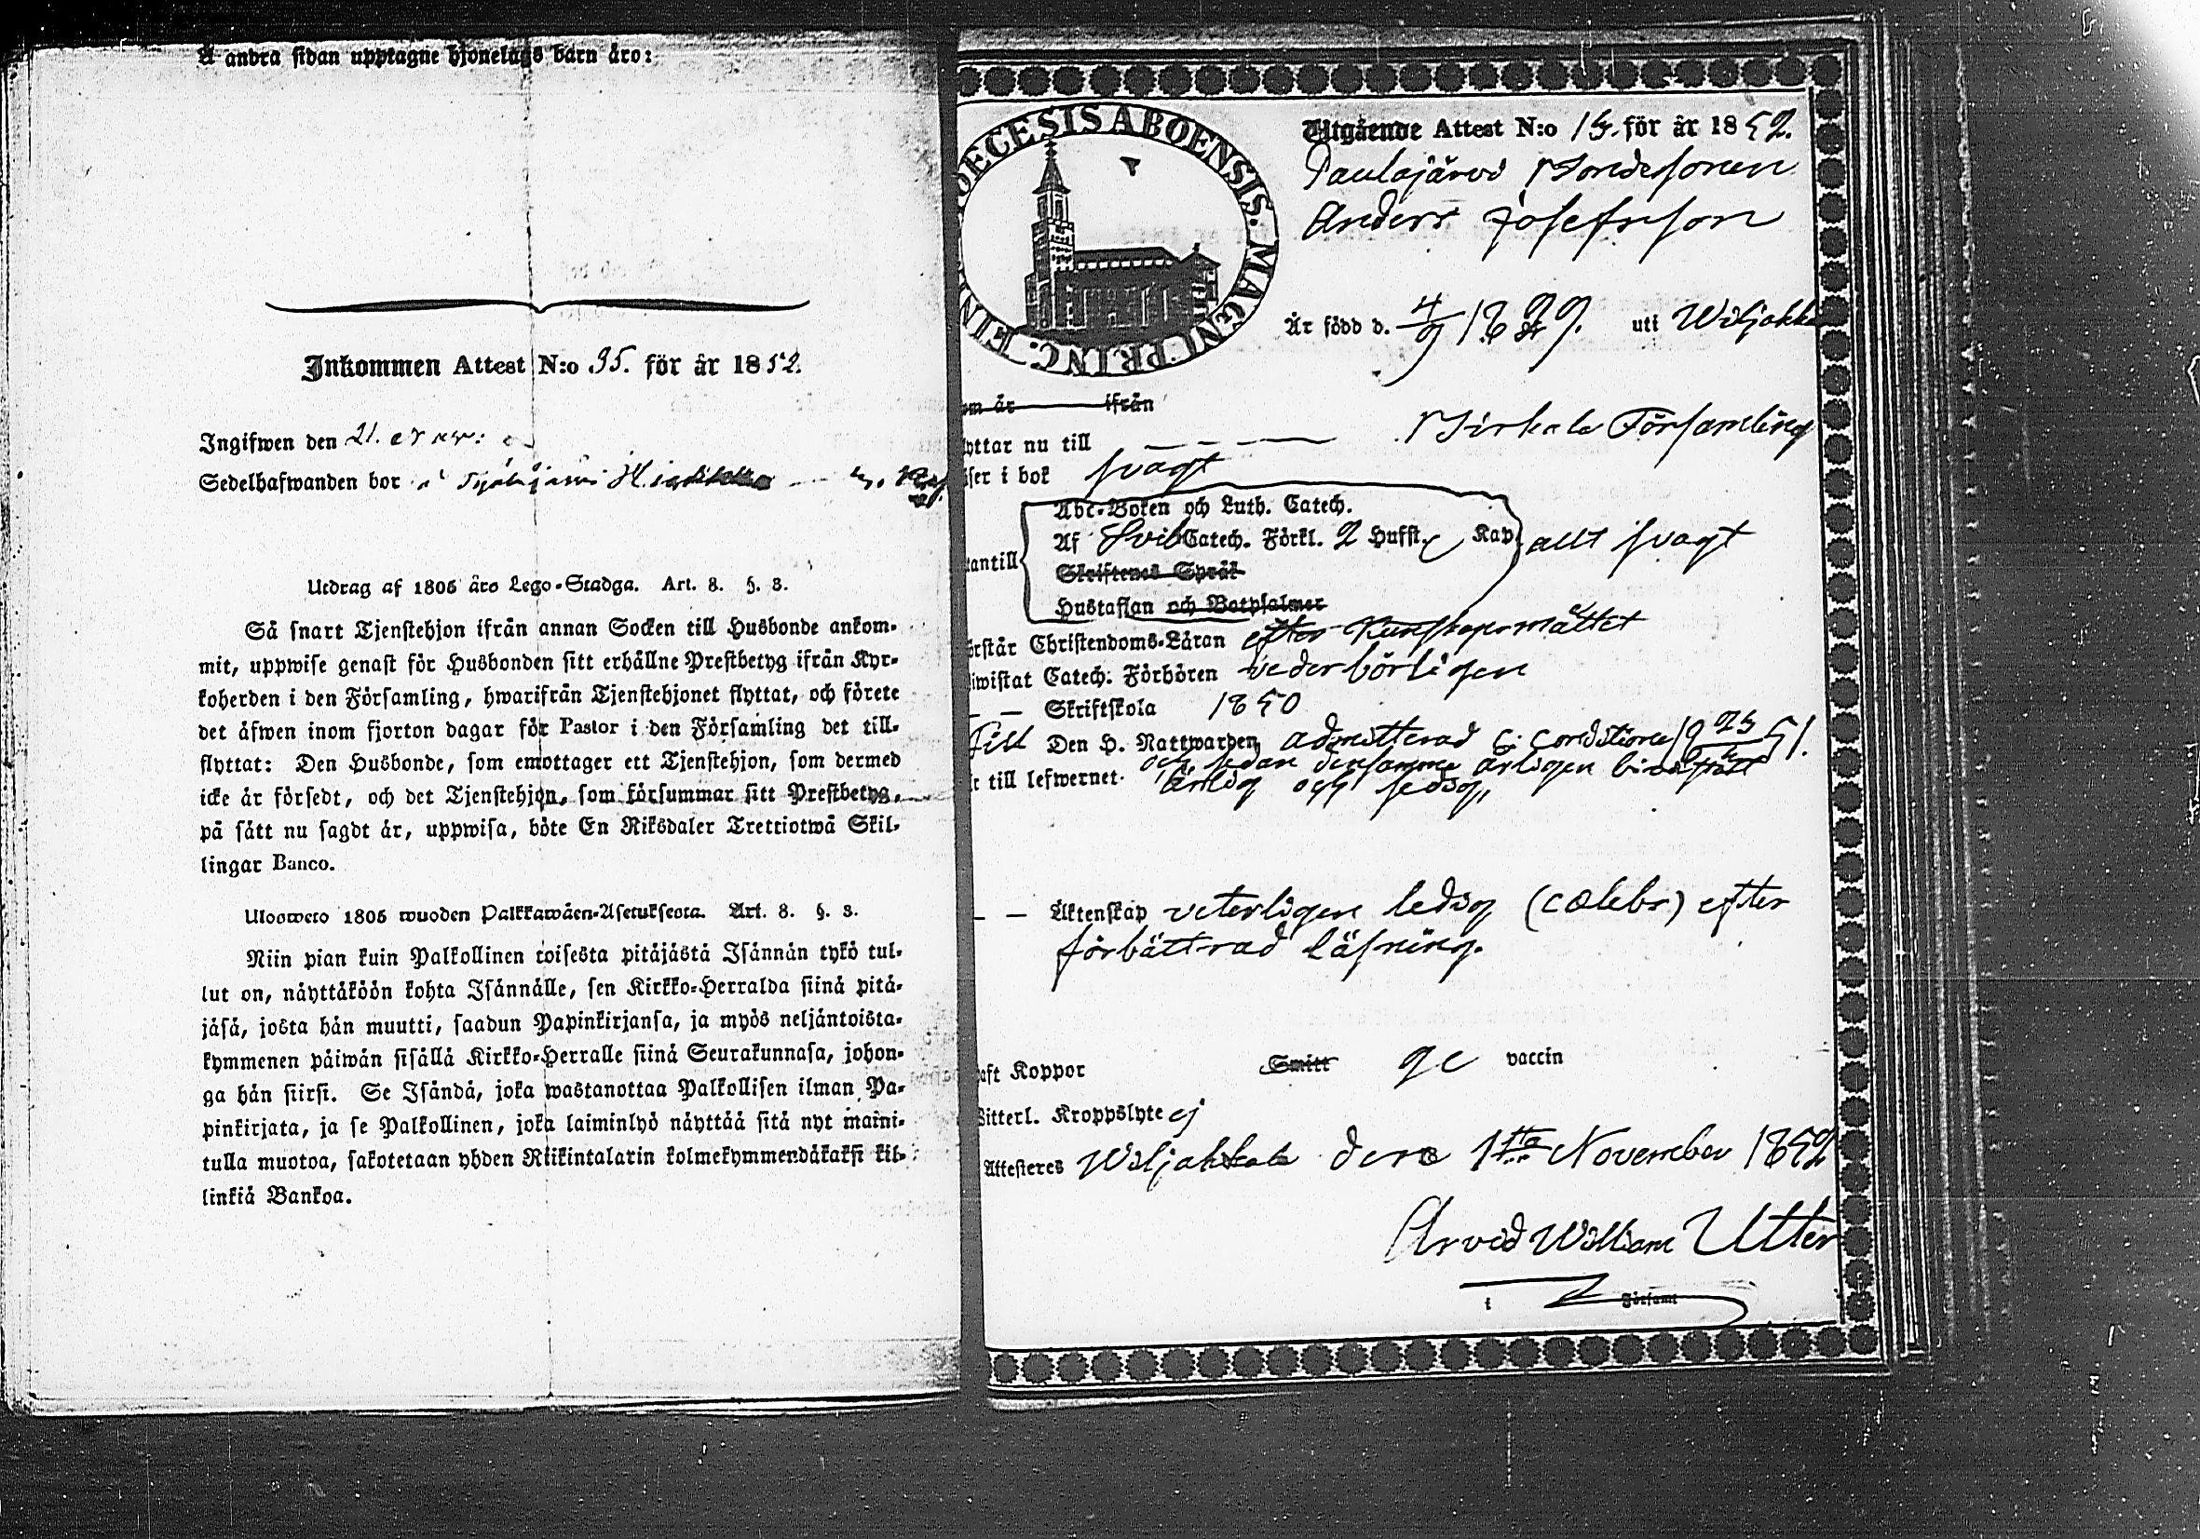 Å andra sidan upptagne hjonelags barn äro:
Inkommen Attest N:o 95. för år 1852.
Ingifwen den 21.
Sedelhafwanden bor
Utdrag af 1805 års Lego-Stadga. Art. 8. §. 3.
Så snart Tjenstehjon ifrån annan Socken till Husbonde ankom-
mit, uppwise genast för Husbonden sitt erhållne Prestbetyg ifrån Kyr-
koherden i den Församling, hwarifrån Tjenstehjonet flyttat, och förete
det äfwen inom fjorton dagar för Pastor i den Församling det till-
flyttat: Den Husbonde, som emottager ett Tjenstehjon, som dermed
icke är försedt, och det Tjenstehjon, som försummar sitt Prestbetyg,
på sätt nu sagdt är, uppwisa, böte En Riksdaler Trettiotwå Skil-
lingar Banco.
Uloswete 1805 wuoden Palkkawäen-Asetuksesta. Art. 8. §. 3.
Niin pian kuin Palkollinen toisesta pitäjästä Isännän tykö tul-
lut on, näyttäköön kohta Isännälle, sen Kirkko-Herralda siinä pitä-
jäsä, josta hän muutti, saadun Papinkirjansa, ja myös neljäntoista-
kymmenen päiwän sisällä Kirkko-Herralle siinä Seurakunnasa, johon-
ga hän siirsi. Se Isändä, joka wastanottaa Palkollisen ilman Pa-
pinkirjata, ja se Palkollinen, joka laiminlyö näyttää sitä nyt maini-
tulla muotoa, sakotetaan yhden Riikintalarin kolmekymmendäkaksi kil-
linkiä Bankoa.
DIOECESIS ABOENSIS. MAGNI PRINC. FINL
Utgående Attest N:o 14. för år 1852.
Paulajärvi Bondesonen
Anders Josefsson
Är född d. 4/9 1829. uti Wiljakka
om år ifrån
yttar nu till Birkala Församling
äser i bok svagt
Abc-Boken och Luth. Catech.
Af Svib Catech. Förkl. 2 Hufst. Kap. allt svagt
antill
Skriftenes Språk
Hustaflan och Botpsalmer
örstår Christendoms-Läran efter Kunskapsmåttet
iwistat Catech. Förhören vederbörligen
Skriftskola 1850
till Den H. Nattwarden admitterad c. conditione 18 25/ 51.
och sedan densamma årligen bivistat
r till lefwernet ärlig och sedig,
Äktenskap veterligen ledig (cælebs) efter
förbättrad läsning.
aft Koppor Smitt ge vaccin
Witterl. Kroppslyte ej
Attesteres Wiljakkala den 1sta November 1852
Arvid William Utter
i Församl